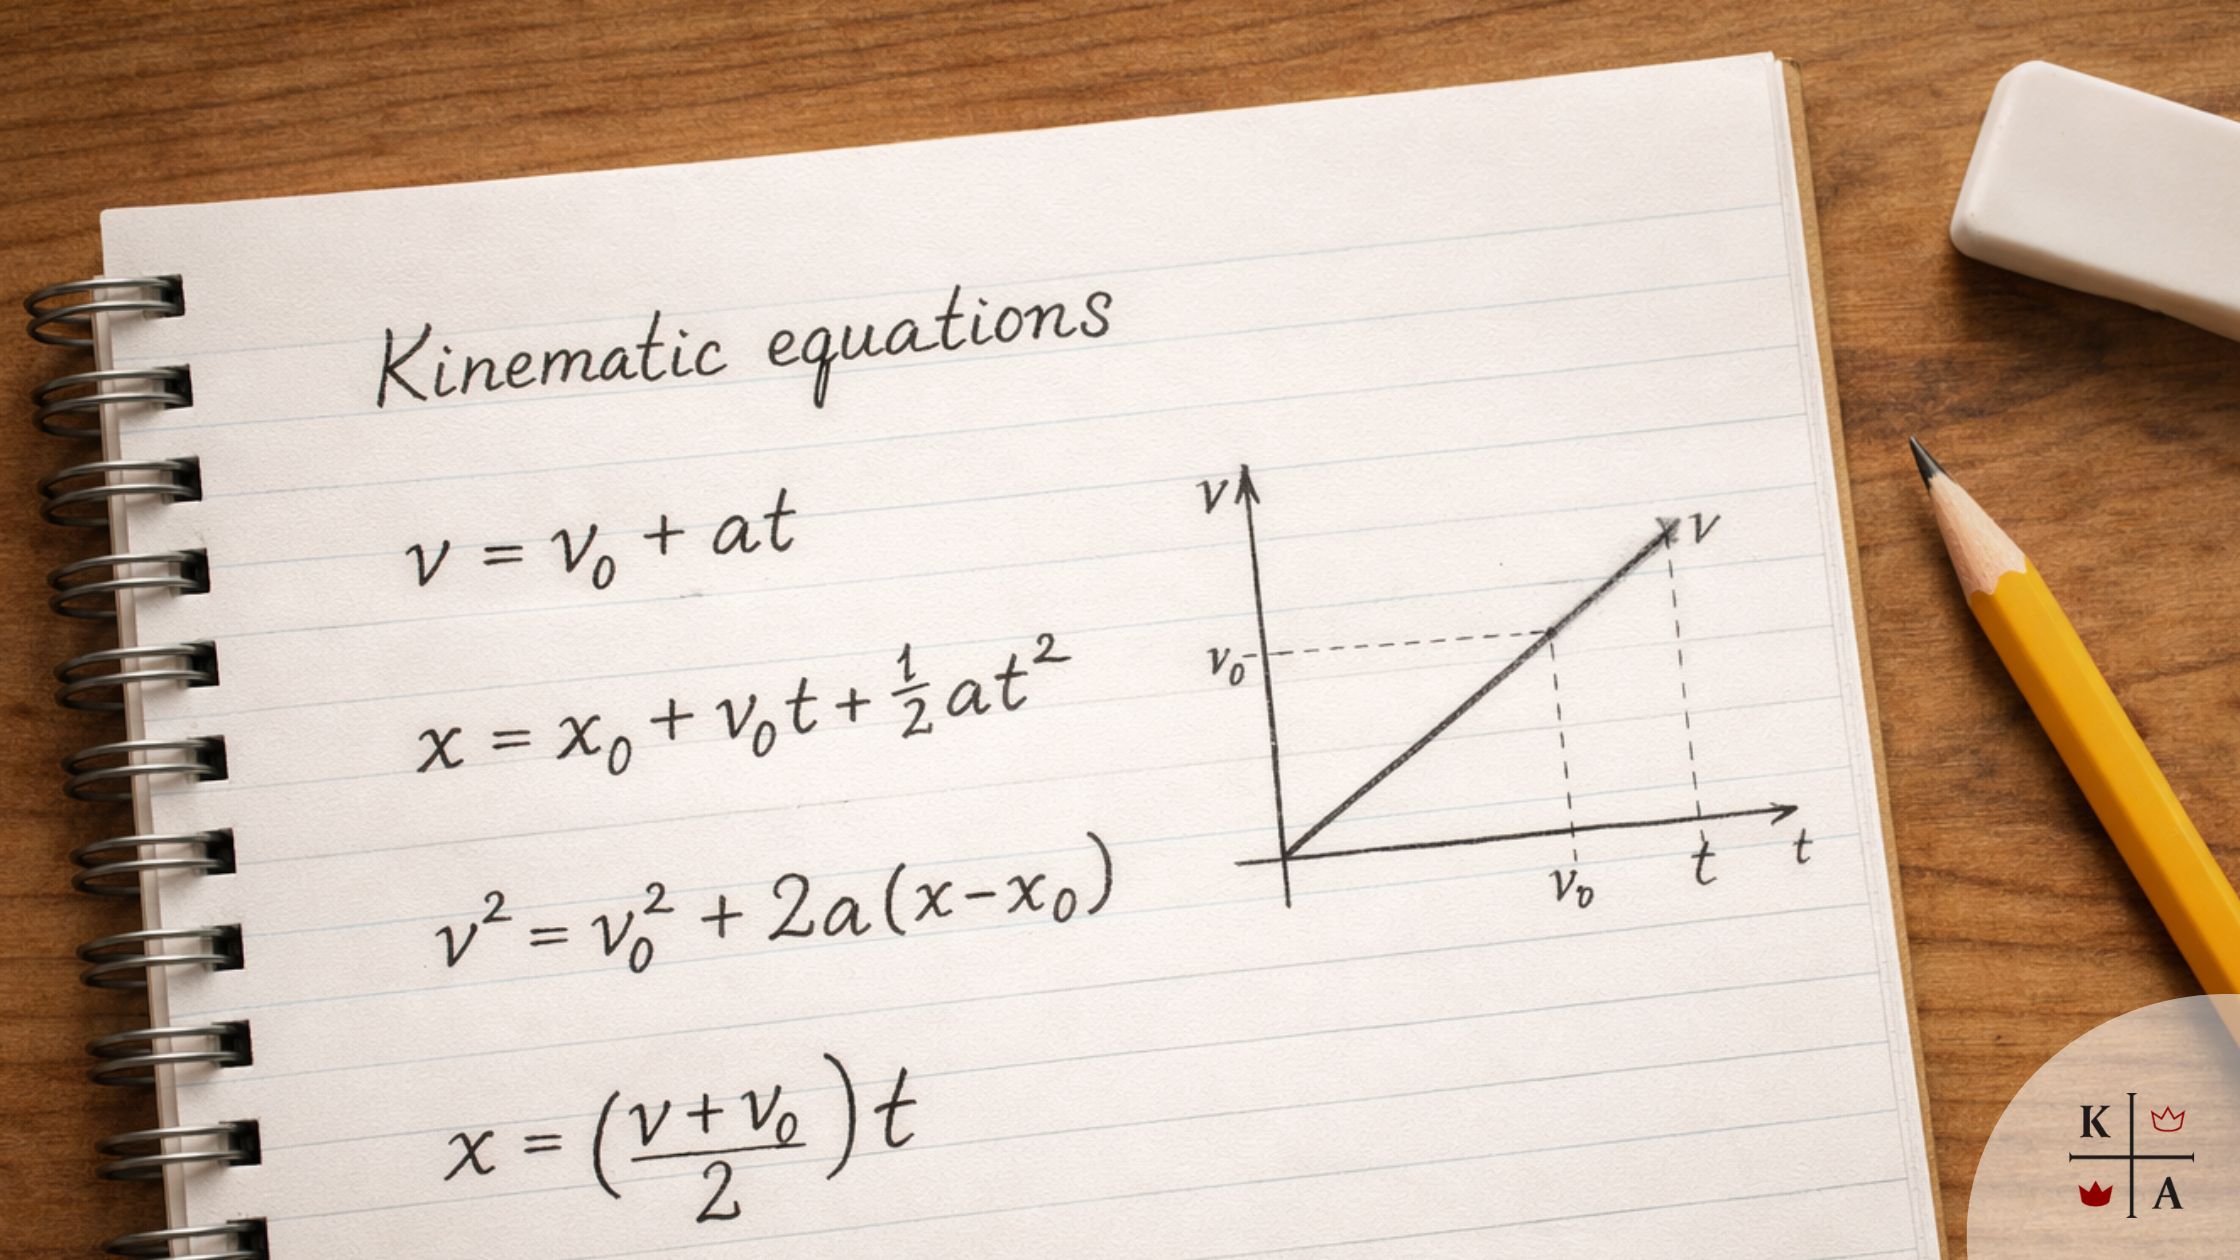 Kinematic equations
v = v₀ + at
x = x₀ + v₀t + ½at²
v² = v₀² + 2a(x-x₀)
x = ((v + v₀)/2)t
v
v
v₀
v₀
t
t
K
A